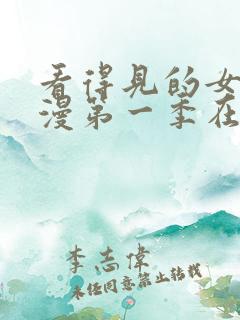 看得见的女
漫第一季在
李志偉
未经同意禁止转载